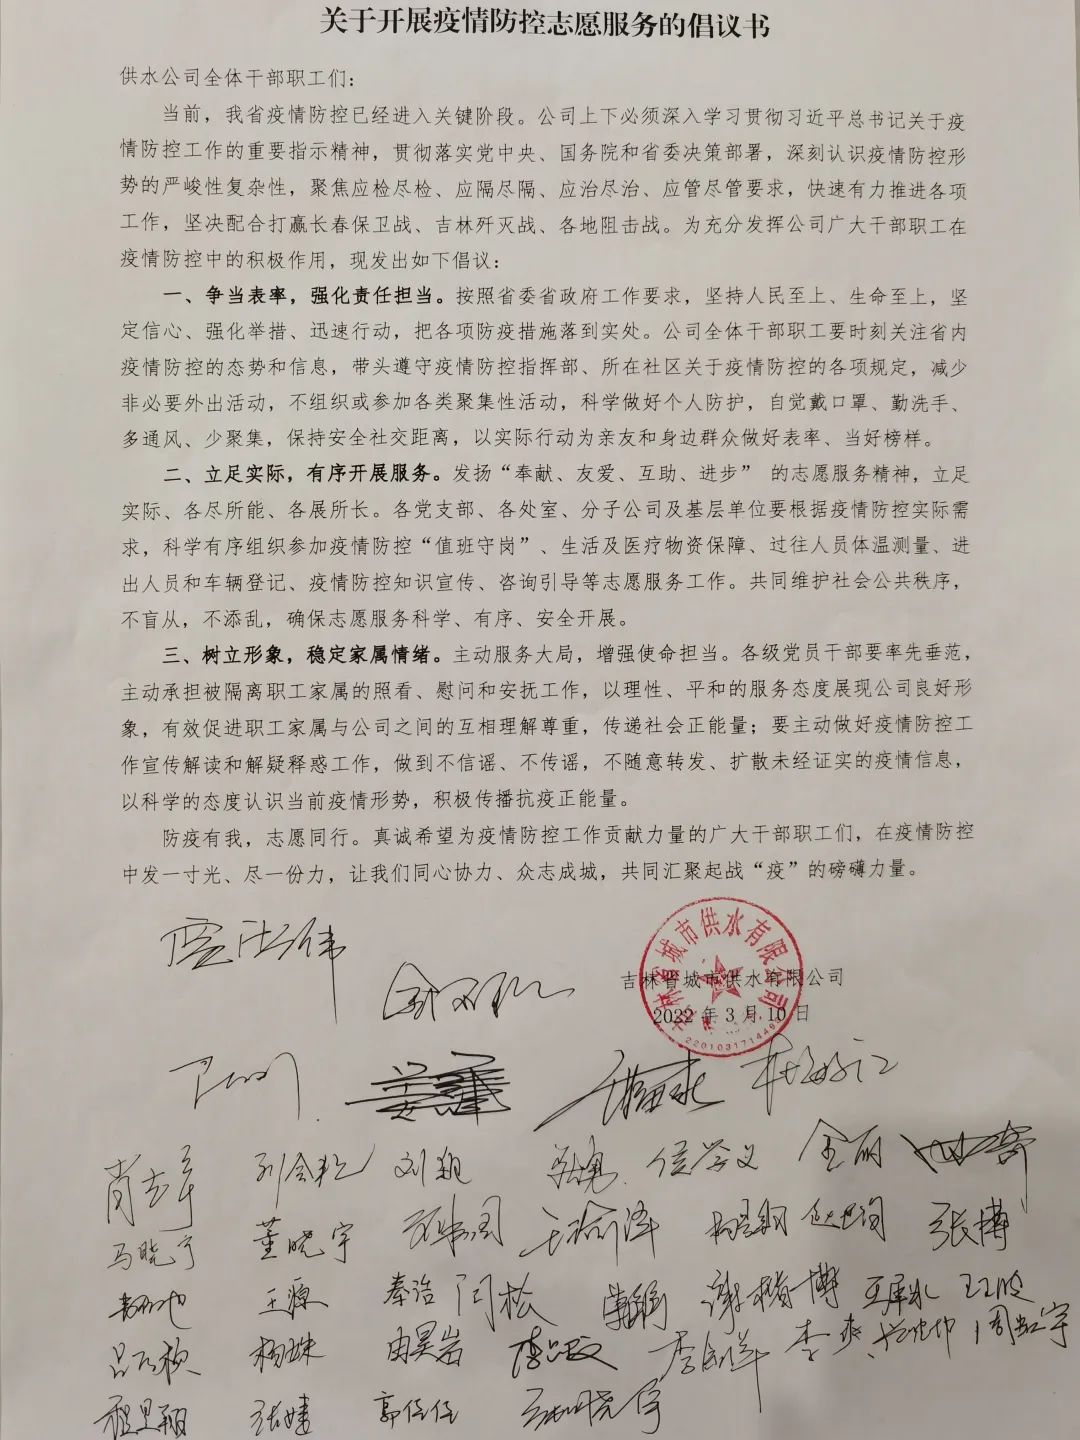 关于开展疫情防控志愿服务的倡议书
供水公司全体干部职工们:
当前，我省疫情防控已经进入关键阶段。公司上下必须深入学习贯彻习近平总书记关于疫
情防控工作的重要指示精神，贯彻落实党中央、国务院和省委决策部署，深刻认识疫情防控形
势的严峻性复杂性，聚焦应检尽检、应隔尽隔、应治尽治、应管尽管要求，快速有力推进各项
工作，坚决配合打赢长春保卫战、吉林歼灭战、各地阻击战。为充分发挥公司广大干部职工在
疫情防控中的积极作用，现发出如下倡议:
一、争当表率，强化责任担当。按照省委省政府工作要求，坚持人民至上、生命至上，坚
定信心、强化举措、迅速行动，把各项防疫措施落到实处。公司全体干部职工要时刻关注省内
疫情防控的态势和信息，带头遵守疫情防控指挥部、所在社区关于疫情防控的各项规定，减少
非必要外出活动，不组织或参加各类聚集性活动，科学做好个人防护，自觉戴口罩、勤洗手、
多通风、少聚集，保持安全社交距离，以实际行动为亲友和身边群众做好表率、当好榜样。
二、立足实际，有序开展服务。发扬“奉献、友爱、互助、进步” 的志愿服务精神，立足
实际、各尽所能、各展所长。各党支部、各处室、分子公司及基层单位要根据疫情防控实际需
求，科学有序组织参加疫情防控“值班守岗”、生活及医疗物资保障、过往人员体温测量、进
出人员和车辆登记、疫情防控知识宣传、咨询引导等志愿服务工作。共同维护社会公共秩序，
不盲从，不添乱，确保志愿服务科学、有序、安全开展。
三、树立形象，稳定家属情绪。主动服务大局，增强使命担当。各级党员干部要率先垂范，
主动承担被隔离职工家属的照看、慰问和安抚工作，以理性、平和的服务态度展现公司良好形
象，有效促进职工家属与公司之间的互相理解尊重，传递社会正能量；要主动做好疫情防控工
作宣传解读和解疑释惑工作，做到不信谣、不传谣，不随意转发、扩散未经证实的疫情信息，
以科学的态度认识当前疫情形势，积极传播抗疫正能量。
防疫有我，志愿同行。真诚希望为疫情防控工作贡献力量的广大干部职工们，在疫情防控
中发一寸光、尽一份力，让我们同心协力、众志成城，共同汇聚起战“疫”的磅礴力量。
吉林省城市供水有限公司
吉林省城市供水有限公司
2022 年 3 月 10 日
2201031714493
肖志军 刘翔 金丽
马晓宁 董晓宇 张博
王源 秦浩 闫松 谢楷博
杨姝 由昊岩 李爽 周宏宇
张婕 郭任任